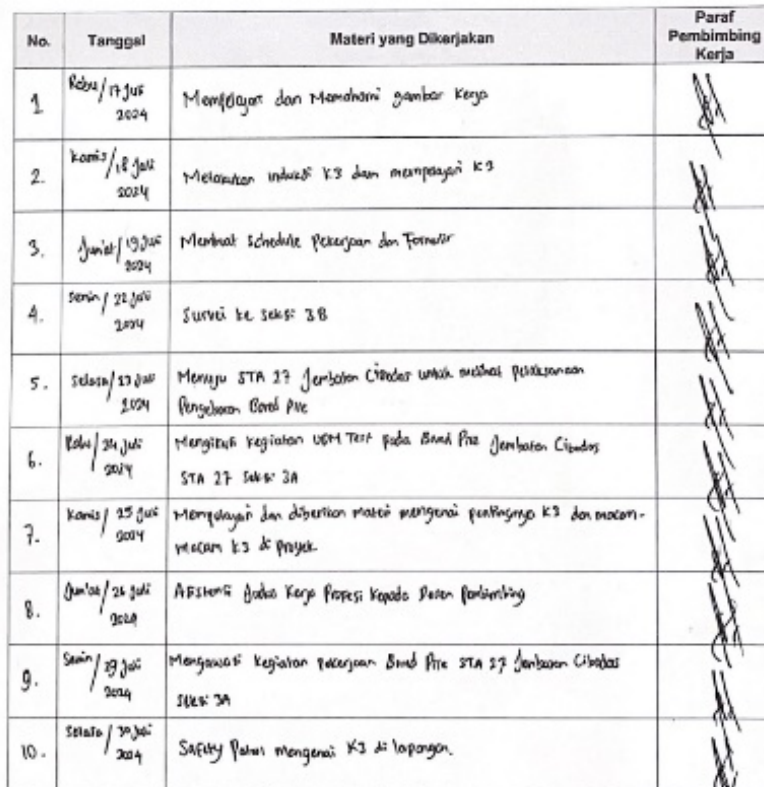 No. Tanggal Materi yang Dikerjakan Paraf Pembimbing Kerja
1. Rabu/17 Juli 2024 Mempelajari dan Memahami gambar Kerja
2. Kamis/18 Juli 2024 Melakukan induksi K3 dan mempelajari K3
3. Jum'at/19 Juli 2024 Membuat Schedule Pekerjaan dan Formulir
4. Senin/22 Juli 2024 Survei ke seksi 3B
5. Selasa/23 Juli 2024 Menuju STA 27 Jembatan Cibodas untuk melihat Pelaksanaan
Pengeboran Bored Pile
6. Rabu/24 Juli 2024 Mengikuti kegiatan Test pada Bored Pile Jembatan Cibodas
STA 27 Seksi 3A
7. Kamis/25 Juli 2024 Mempelajari dan diberikan materi mengenai pentingnya K3 dan macam-
macam K3 di Proyek.
8. Jum'at/26 Juli 2024 Asistensi Kerja Profesi Kepada Dosen Pembimbing
9. Senin/29 Juli 2024 Mengawasi Kegiatan Pekerjaan Bored Pile STA 27 Jembatan Cibodas
Seksi 3A
10. Selasa/30 Juli 2024 Safety mengenai K3 di lapangan.